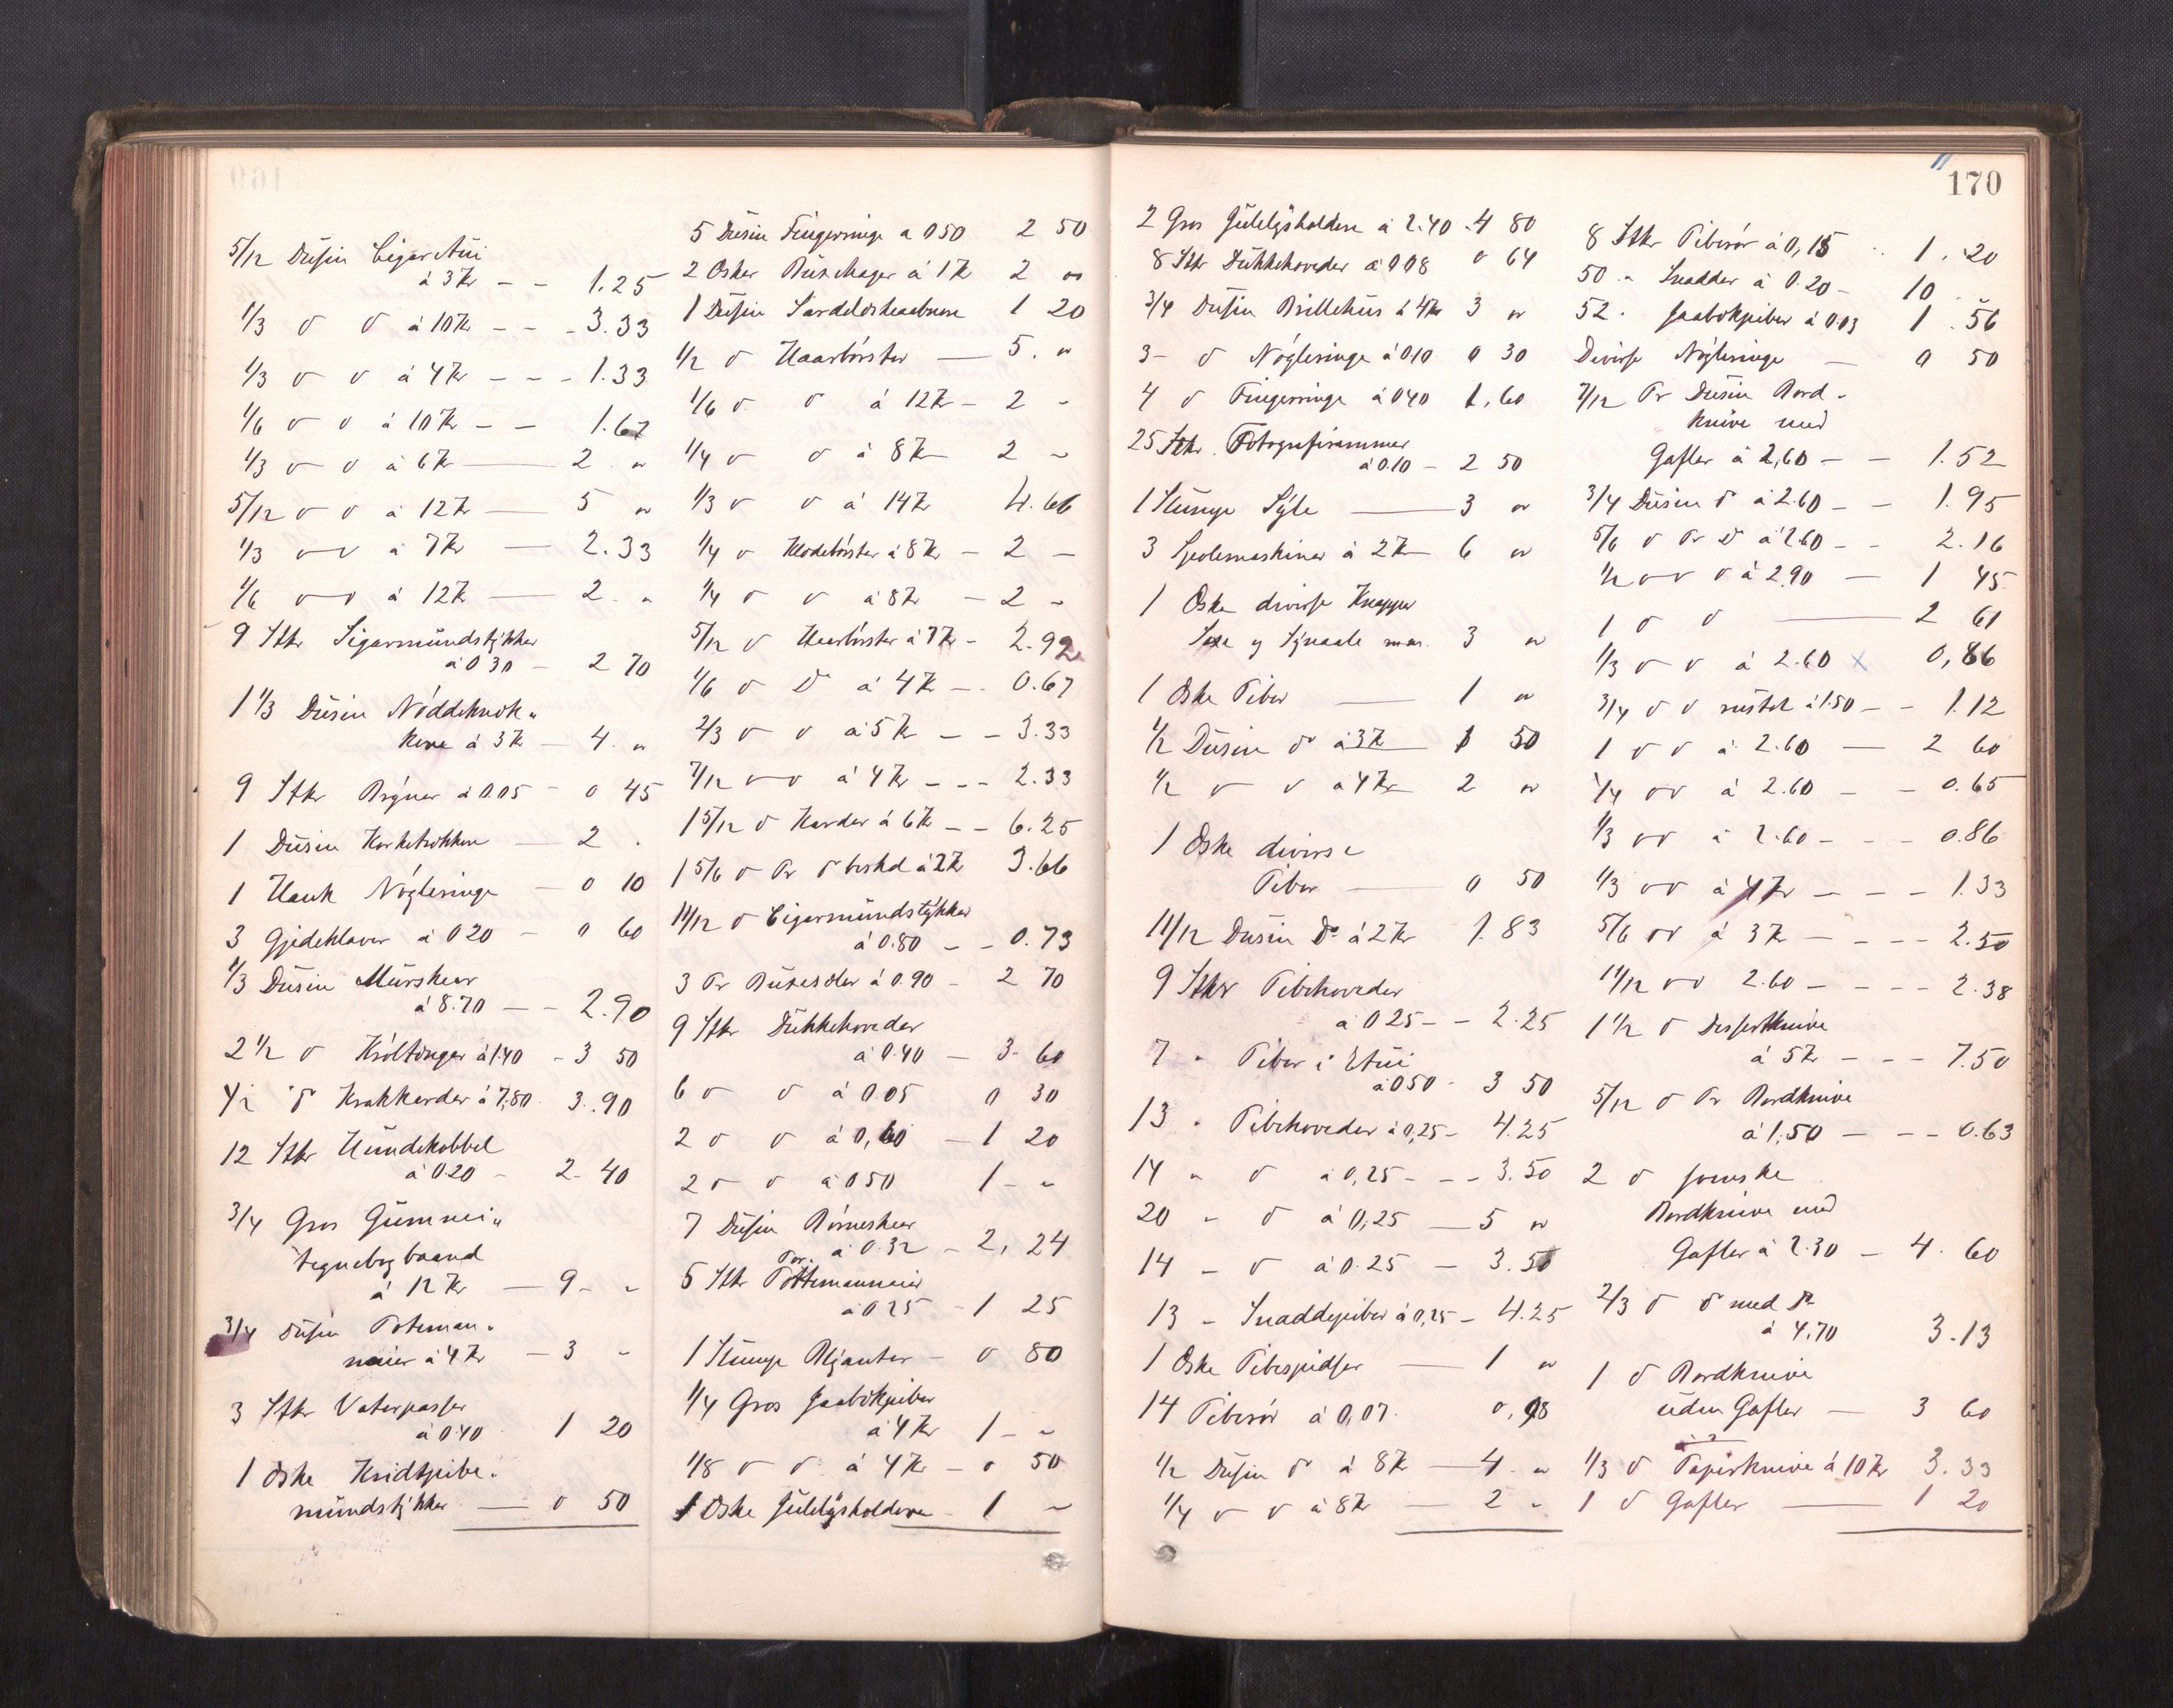 5/12 Dusin Cigar Etui
à 3 Kr - - 1.25
1/3 do do à 10 Kr - - - 3.33
1/3 do do à 4 Kr - - - 1.33
1/6 do do à 10 Kr - - 1.67
1/3 do do à 6 Kr — 2 "
5/12 do do à 12 Kr — 5 "
1/3 do do à 7 Kr — 2.33
1/6 do do à 12 Kr — 2 "
9 Stkr Sigarmundstykker
à 0 30 - 2 70
1 1/3 Dusin Nøddeknæk-
kere à 3 Kr - 4 "
9 Stkr Bryner à 0.05 - 0 45
1 Dusin Korketrekkere — 2 .
1 Hank Nøgleringe — 0 10
3 Gjedeklaver à 0 20 - 0 60
1/3 Dusin Murskeer
à 8.70 — - 2.90
2 1/2 do Krøltænger à 1.40 - 3 50
1/2 do Krakkarder à 7,80 3.90
12 Stkr Hundekobbel
à 0.20 - 2.40
3/4 Gros Gummi-
tegnebogbaand
à 12 Kr — 9 - -
3/4 Dusin Portemon-
naier à 4 Kr - 3 -
3 Stkr Vaterpasser
à 0.40 1 20
1 Øske Kridtpibe-
mundstykker — 0 50
5 Dusin Fingerringe a 0 50 2 50
2 Øsker Buxehager à 1 Kr 2 "
1 Dusin Sardeldskeaabnere 1 20
1/2 do Haarbørster — 5. "
1/6 do do à 12 Kr - 2 -
1/4 do do à 8 Kr 2 -
1/3 do do à 14 Kr 4.66
1/4 do Klædebørster à 8 Kr - 2 —
1/4 do do à 8 Kr - 2 -
5/12 do Haarbørster à 7 Kr - 2.92
1/6 do Do à 4 Kr — . 0.67
2/3 do do à 5 Kr - - 3.33
7/12 do do à 4 Kr - - - 2.33
1 5/12 do Karder à 6 Kr - - 6.25
1 5/6 do Pr do beskd à 2 Kr 3.66
11/12 do Cigarmundstykker
à 0.80 - - 0.73
3 Pr Buxeseler à 0.90 - 2 70
9 Stkr Dukkehoveder
à 0.40 — 3. 60
6 do do à 0.05 0 30
2 do do à 0,60 — 1 20
2 do do à 0 50 1 - -
7 Dusin Børneskeer
à 0.32 - 2, 24
Por.
5 Stkr Portemonnaier
à 0 25 - 1 25
1 Klunge Uljanter - 0 80
1/4 Gros Jaabukpiber
à 4 Kr 1 - -
1/8 do do à 4 Kr - 0 50
1 Øske Julelysholdere - 1 -
170
2 Gros Julelysholdere à 2.40 . 4 80
8 Stkr Dukkehoveder à 0 08 0 64
3/4 Dusin Brillehus à 4 Kr 3 "
3 - do Nøgleringe à 0.10 0 30
4 do Fingerringe à 0 40 1,60
25 Stkr. Fotografirammer
à 0.10 - 2 50
1 Klunge Syle — 3 "
3 Symaskiner à 2 Kr 6 "
1 Øske diverse Knapper
Saxe og Synaale m.m. 3 "
1 Øske Piber — 1 "
1/2 Dusin do à 3 Kr 1 50
1/2 do do à 4 Kr 2 "
1 Øske diverse
Piber — 0 50
11/12 Dusin Do à 2 Kr 1.83
9 Stkr Pibehoveder
à 0 25 - - 2.25
7 " Piber i Etui
à 0 50 - 3 50
13 " Pibehoveder à 0,25 - 4.25
14 " do à 0,25 - - - 3.50
20 " do à 0,25 — 5 "
14 - do à 0.25 — 3.50
13 - Snaddepiber à 0,25 - 4.25
1 Øske Pibespidser — 1 "
14 Piberør à 0,07. 0,98
1/2 Dusin do à 8 Kr — 4 "
1/4 do do à 8 Kr — 2 -
8 Stkr Piberør à 0,15 . 1. 20
50 " Snadder à 0.20 - 10
52 . Jaabukpiber à 0.03 1.56
Diverse Nøgleringe — 0 50
7/12 Pr Dusin Bord-
knive med
Gafler à 2,60 - - 1.52
3/4 Dusin do à 2.60 - - 1.95
5/6 do Pr Do à 2.60 - - 2.16
1/2 do do do à 2.90 — 1 45
1 do do — 2 61
1/3 do do à 2.60 x 0,86
3/4 do do rustet à 1.50 - - 1.12
1 do do à 2.60 — 2 60
1/4 do do à 2.60 - - 0.65
1/3 do do à 2.60 - - - 0.86
1/3 do do à 4 Kr - - - 1.33
5/6 do do à 3 Kr - - - - 2.50
11/12 do do 2.60 - - - - 2.38
1 1/2 do Dessertknive
à 5 Kr - - - 7.50
5/12 do Pr Bordknive
à 1,50 - - - 0.63
2 do
Bordknive med
Gafler à 2.30 - 4. 60
2/3 do do med do
à 4,70 3.13
1 do Bordknive
uden Gafler — 3 60
1/3 do Papirknive à 10 Kr 3.33
1 do Gafler — 1 20